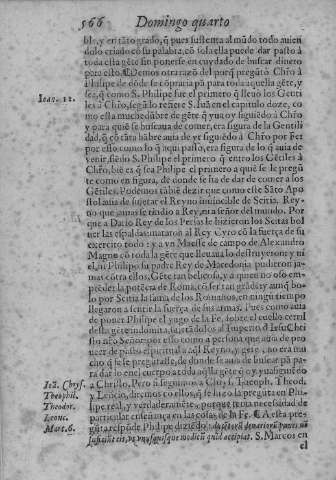 566 Domingo quarto
ble, y en tãto grado, q̃ pues sustenta al mũdo todo auien
dolo criado cõ su palabra, cõ sola ella puede dar pasto â
toda esta gẽte sin ponerse en cuydado de buscar dinero
para esto. Demos otra razõ del porq̃ pregũtô Chr̃o â
Philipe de dõde se cõpraria pã para toda aquella gẽte, y
sea, q̃ como S. Philipe fue el primero q̃ lleuô los Gẽti
les â Chr̃o, segũ lo refiere S. Iuã en el capitulo doze, co
Ioan. 12.
mo esta muchedũbre de gẽte q̃ yua oy siguiẽdo â Chr̃o
y para quiẽ se buscaua de comer, era figura de la Gentili
dad, q̃ cõ tãta hãbre auia de yr siguiẽdo â Chr̃o por
esso como lo q̃ aqui passo, era figura de lo q̃ auia de
venir, siẽdo S. Philipe el primero q̃ entro los Gẽtiles â
Chr̃o, biẽ es q̃ sea Philipe el primero a quiẽ se le pregũ
te como en figura, de donde se ha de dar de comer a los
Gẽtiles. Podemos tãbiẽ dezir que como este Sãto Apo
stol auia de sujetar el Reyno inuincible de Scitia, Rey-
no que jamas se rindio a Rey, ni a señor del mundo. Por
que a Dario Rey de los Persas le hizieron los Scitas bol
uer las espaldas, mataron al Rey Cyro cõ la fuerça de su
exercito todo: y a vn Maesse de campo de Alexandro
Magno cõ toda la gẽte que lleuaua lo destruyeron: y ni
el, ni Philipo su padre Rey de Macedonia pudieron ja-
mas cõtra ellos, Gẽte tan belicosa, y a quien no oso em-
prẽder la potẽcia de Roma, cõ ser tan grãde: y aunq̃ bo-
lo por Scitia la fama de los Romanos, en ningũ tiempo
llegaron a sentir la fuerça de sus armas. Pues como auia
de poner Philipe el yugo de la Fe, sobre el cuello cerril
desta gẽte indomita, sujetãdolos al Imperio d' Iesu Chri
sto nr̃o Señor: por esso como a persona que auia de pro
ueer de pasto espiritual a aq̃l Reyno, y gẽte, no era mu
cho q̃ se le preguntasse, de donde se auia de buscar pã pa-
ra dar lo en el cuerpo a toda aq̃lla gẽte q̃ oy yua siguiẽdo
Iõ. Chrys.
a Christo. Pero si seguimos a Chrys. Theoph. Theod.
Theophil.
y Leõcio, diremos cõ ellos, q̃ se hizo la pregunta en Phi
Theodor.
lipe real, y verdaderamẽte, porque tenia necesidad de
Leonc.
particular enseñança en las cosas de la Fe. A esta pre-
Marc. 6.
gũta respõde Philipe diziẽdo, ducẽtorũ denariorũ panes nõ
sufficiũt eis, vt vnusquisque modicũ quid accipiat. S. Marcos en
el